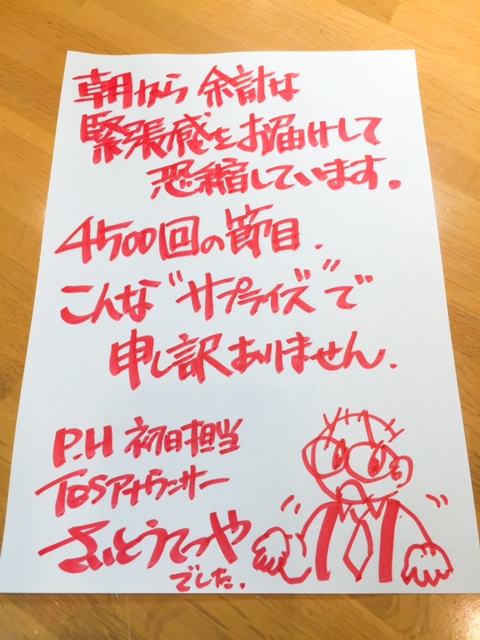 朝から 余計な
緊張感をお届けして
恐縮しています.
4500回の節目.
こんな"サプライズ"で
申し訳ありません.
P.H 初日担当
TOSアナウンサー
さいとうてつや
でした.